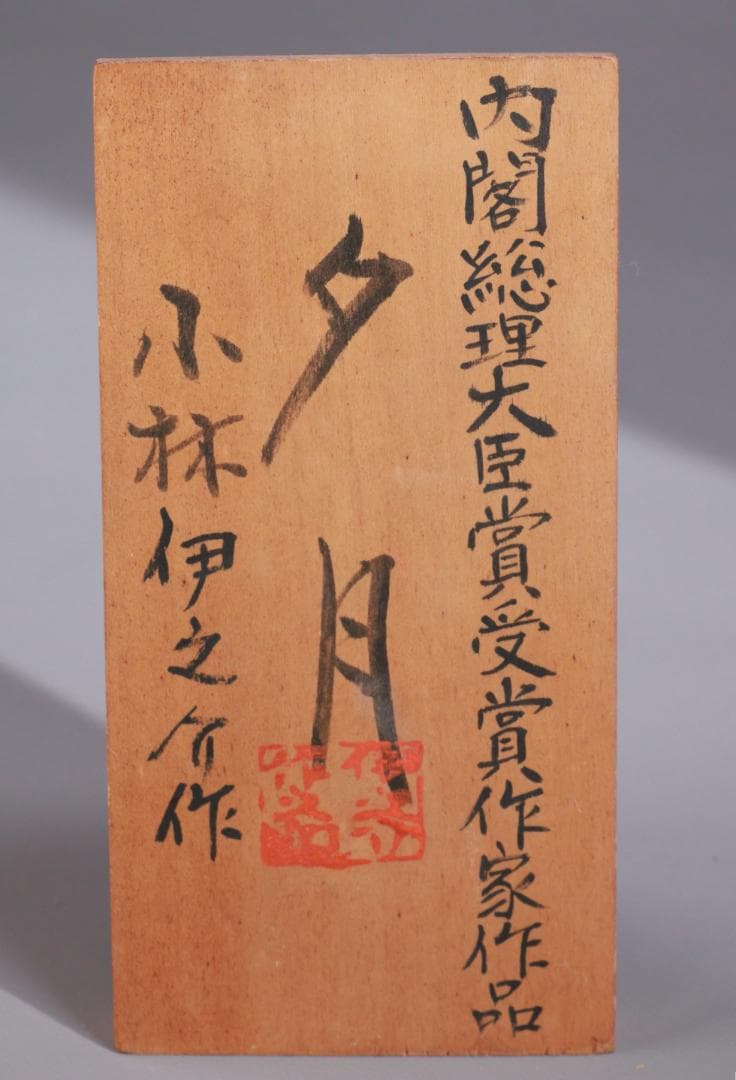 内閣総理大臣賞受賞作家作品
夕月
小林伊之介作